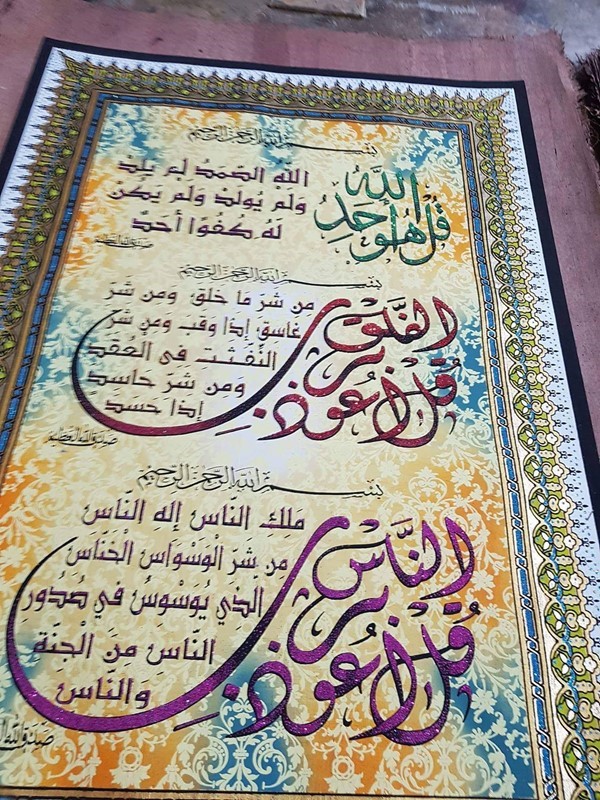 بسم الله الرحمن الرحيم
قُل هُوَ اللّٰه أَحَدٌ
اللّٰهُ الصَّمَدُ لَمْ يَلِدْ
وَلَمْ يُولَدْ وَلَمْ يَكُنْ
لَهُ كُفُوًا أَحَدٌ
صدق الله العظيم
بسم الله الرحمن الرحيم
قُل أَعُوذُ بِرَبِّ الفَلَق
مِن شَرِّ مَا خَلَقَ وَمِن شَرِّ
غَاسِقٍ إِذَا وَقَبَ وَمِن شَرِّ
النَّفَّثَتِ فِى العُقَد
وَمِن شَرِّ حَاسِدٍ
إِذَا حَسَدَ
صدق الله العظيم
بسم الله الرحمن الرحيم
قُل أَعُوذُ بِرَبِّ النَّاس
مَلِكِ النَّاسِ إِلَهِ النَّاسِ
مِن شَرِّ الْوَسْوَاسِ الْخَنَّاسِ
الَّذِي يُوَسْوِسُ فِي صُدُورِ
النَّاسِ مِنَ الْجِنَّةِ
وَالنَّاسِ
صدق الله